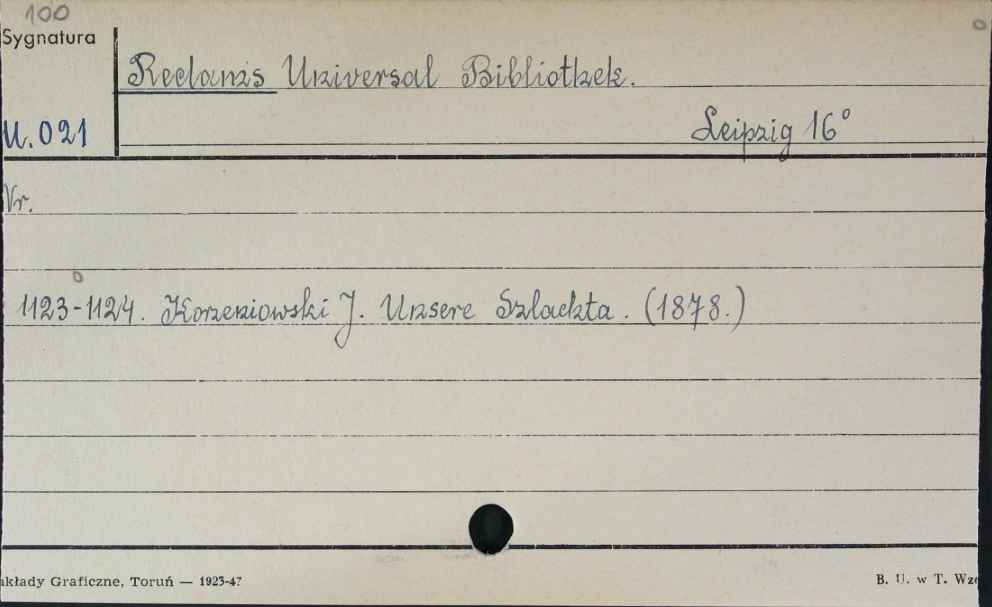 100
Sygnatura
Reclams Universal Bibliothek.
U. 021
Leipzig 16°
Nr.
1123-1124. Korzeniowski J. Unsere Szlachta. (1878.)
akłady Graficzne, Toruń — 1923-47
B. U. w T. Wz